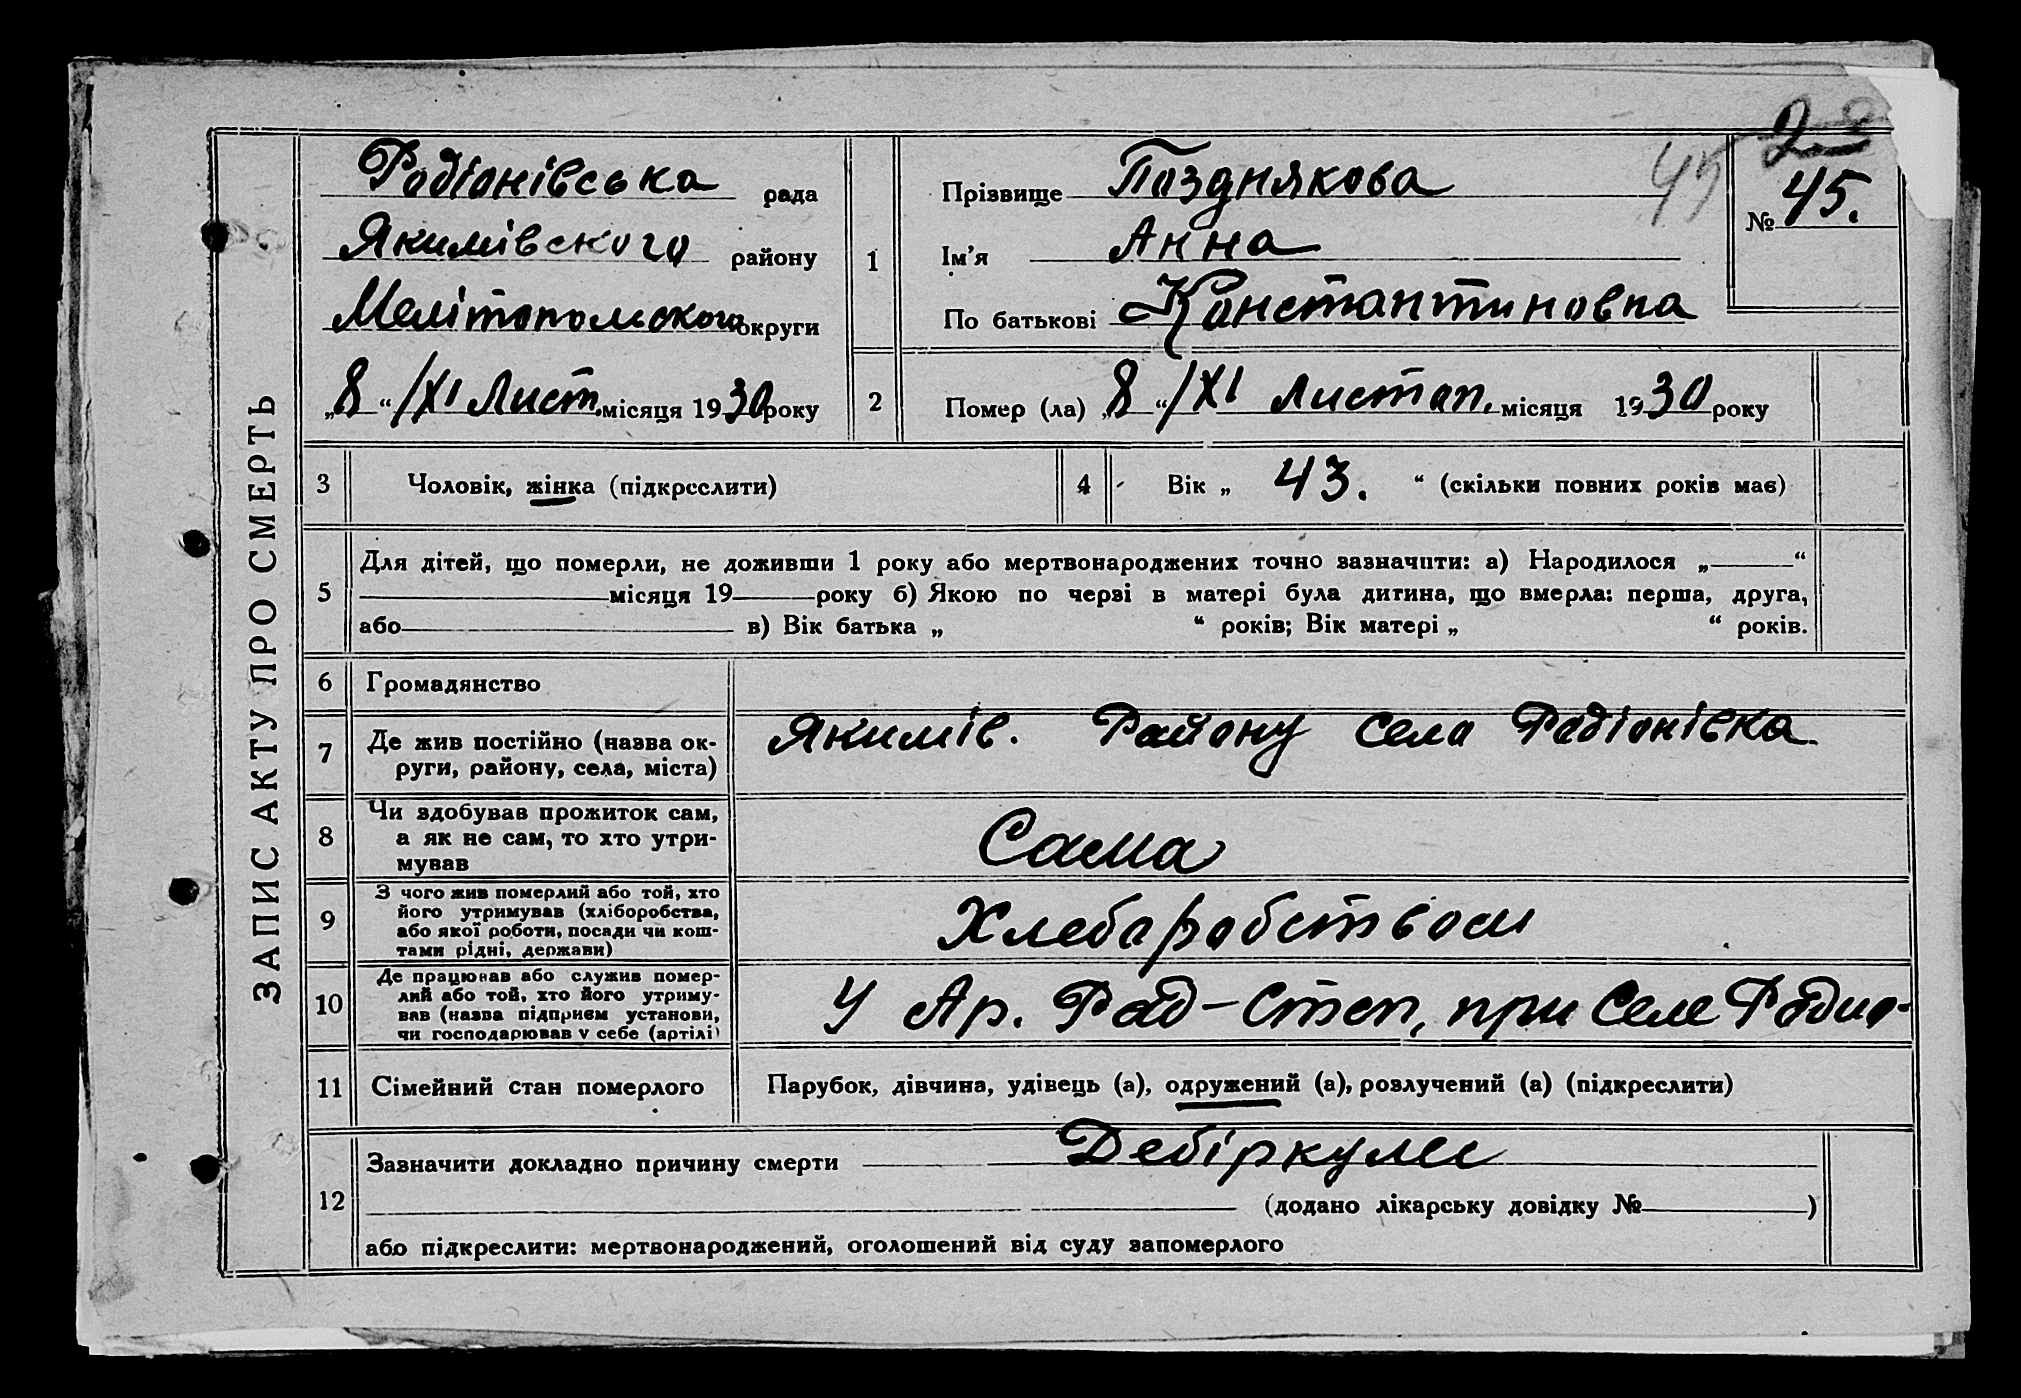 ЗАПИС АКТУ ПРО СМЕРТЬ
Родіонівська рада
Якимівского району
Мелітопольского округи
„8“/XI Лист. місяця 1930 року
1
Прізвище Позднякова
Ім'я Анна
По батькові Константиновна
45
№ 45.
2
Помер (ла) „8“/XI Листоп. місяця 1930 року
3 Чоловік, жінка (підкреслити)
4 Вік „ 43. “ (скільки повних років має)
5
Для дітей, що померли, не доживши 1 року або мертвонароджених точно зазначити: а) Народилося „ “
місяця 19 року б) Якою по черзі в матері була дитина, що вмерла: перша, друга,
або в) Вік батька „ “ років; Вік матері „ “ років.
6 Громадянство
7 Де жив постійно (назва ок-
руги, району, села, міста)
Якимів. Району Села Родіонівка
8 Чи здобував прожиток сам,
а як не сам, то хто утри-
мував
Сама
9 З чого жив померлий або той, хто
його утримував (хліборобства,
або якої роботи, посади чи кош-
тами рідні, держави)
Хлебаробством
10 Де працював або служив помер-
лий або той, хто його утриму-
вав (назва підприєм установи,
чи господарював у себе (артілі)
У Ар. Рад-Степ, при Селе Родио-
11 Сімейний стан померлого
Парубок, дівчина, удівець (а), одружений (а), розлучений (а) (підкреслити)
12
Зазначити докладно причину смерти
(додано лікарську довідку № )
або підкреслити: мертвонароджений, оголошений від суду запомерлого